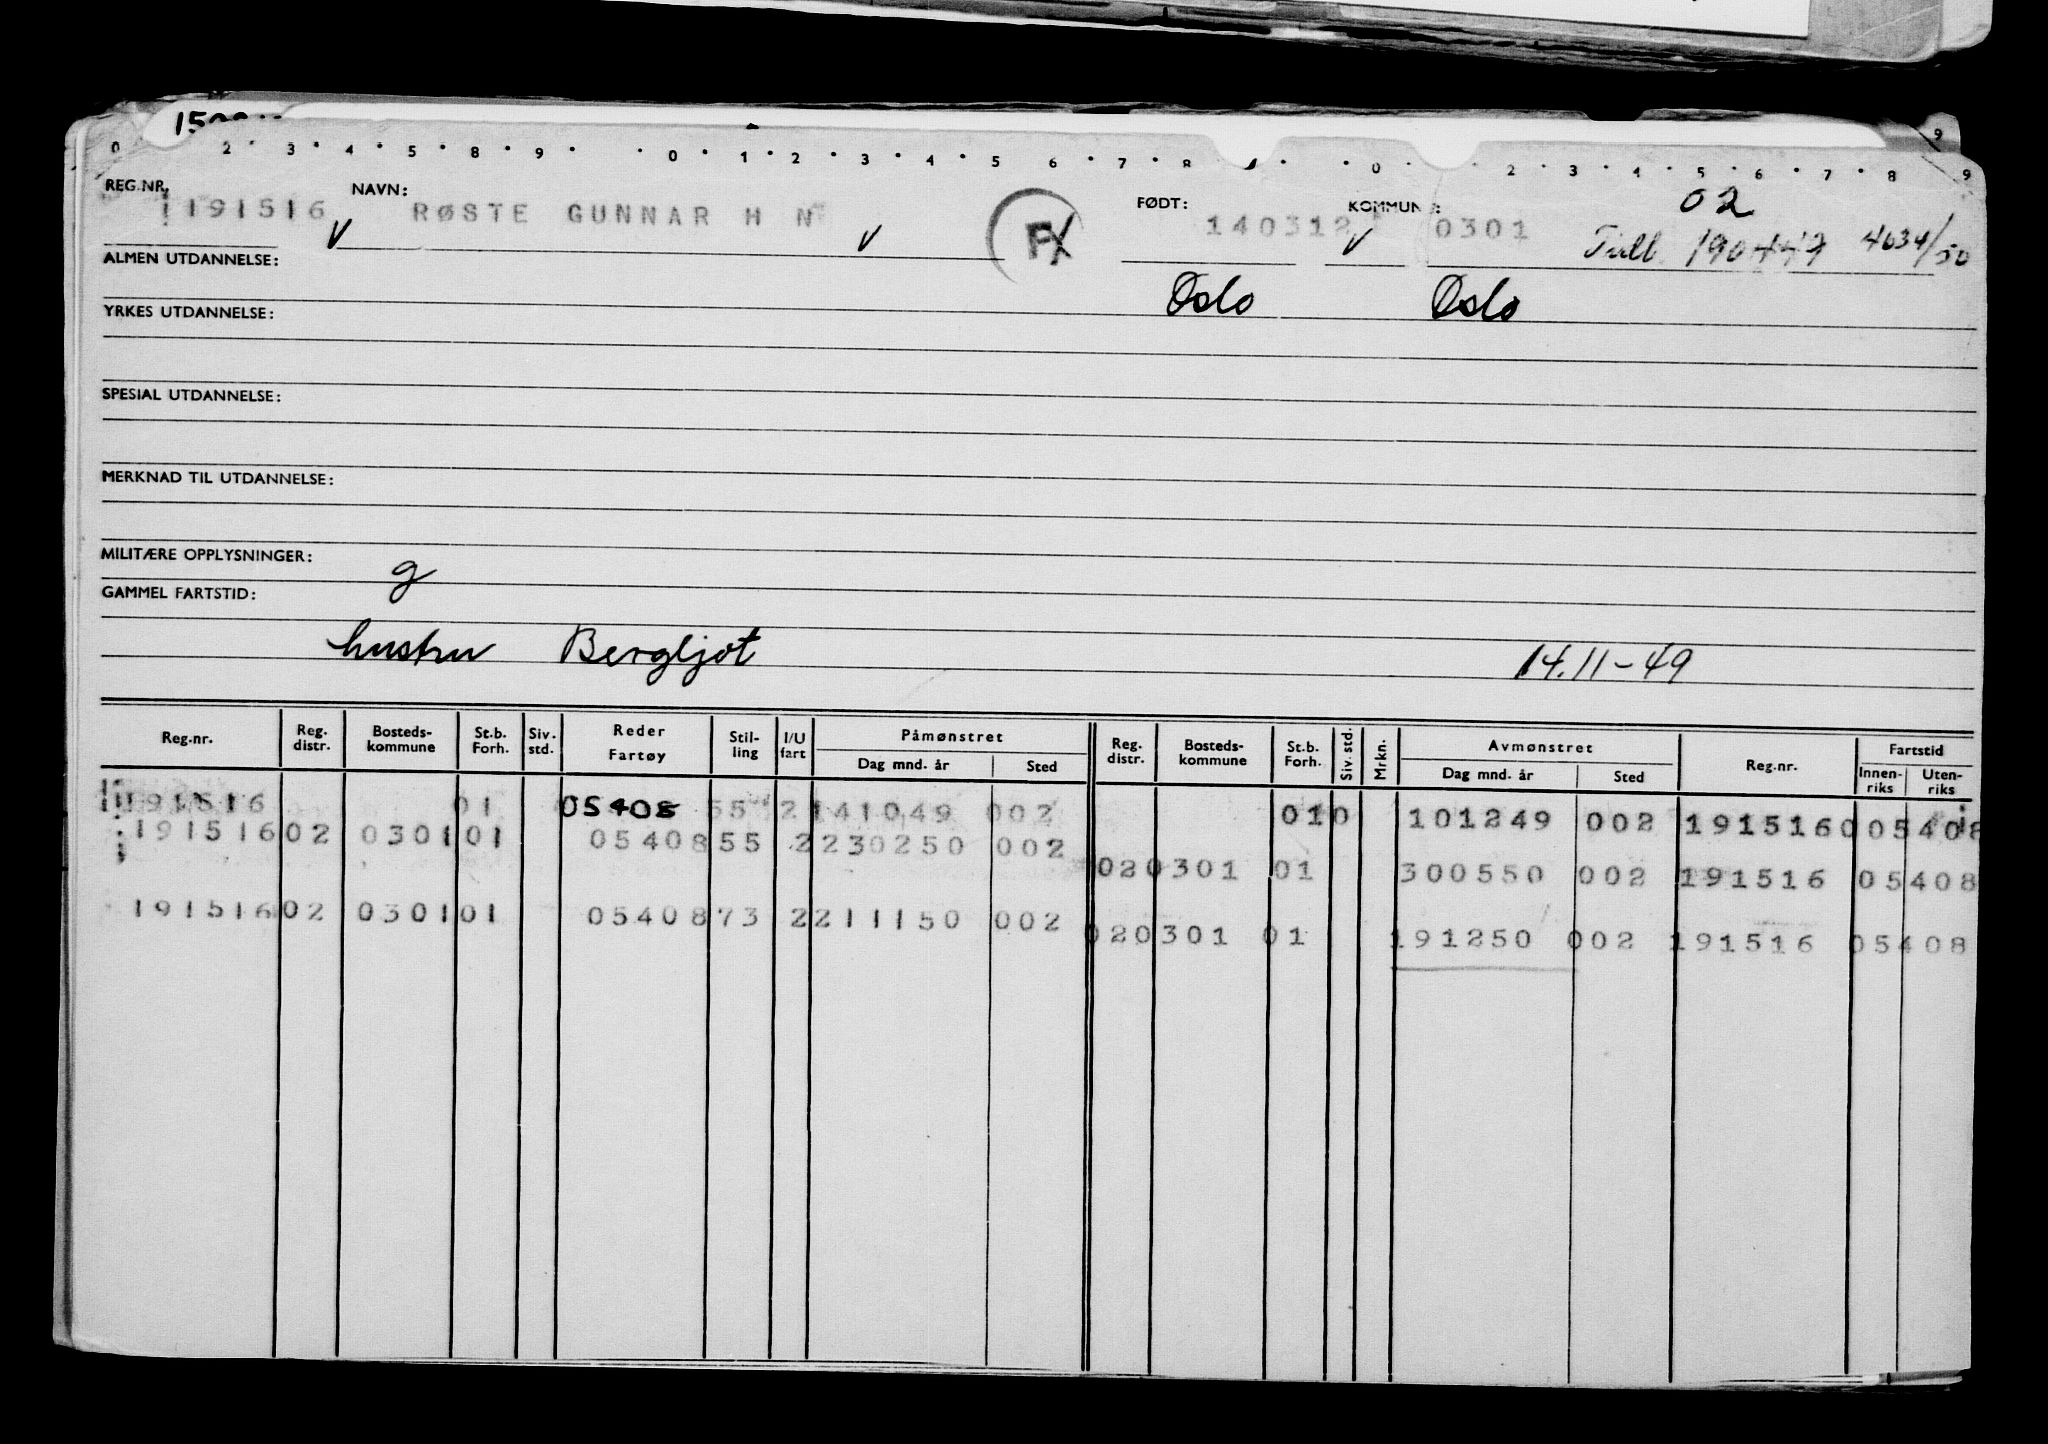 0 2 3 4 5 8 9 0 1 2 3 4 5 6 7 8 0 2 3 4 5 6 7 8 9
REG.NR. 191516 NAVN: RØSTE GUNNAR H N FØDT: 140312 KOMMUNE: 0301 02
190447 4034/50
ALMEN UTDANNELSE:
Oslo Oslo
YRKES UTDANNELSE:
SPESIAL UTDANNELSE:
MERKNAD TIL UTDANNELSE:
MILITÆRE OPPLYSNINGER: g
GAMMEL FARTSTID:
hustru Bergljot 14.11-49
Reg.nr. Reg. distr. Bosteds-kommune St.b. Forh. Siv. std. Reder Fartøy Stil-ling I/U fart Påmønstret Dag mnd. år Sted Reg. distr. Bosteds-kommune St.b. Forh. Siv. std. Mrkn. Avmønstret Dag mnd. år Sted Reg.nr. Fartstid Innen-riks Uten-riks
191516 01 05408 55 2 141049 002 010 101249 002 191516 005408
191516 02 0301 01 05408 55 2 230250 002
02 0301 01 300550 002 191516 05408
191516 02 0301 01 05408 73 2 211150 002
02 0301 01 191250 002 191516 05408